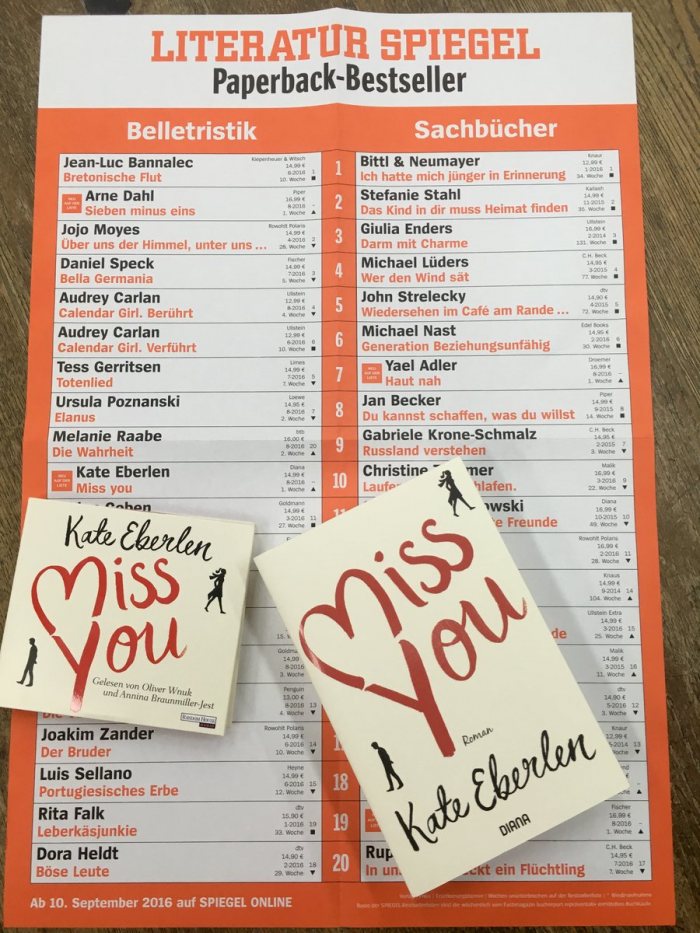 LITERATUR SPIEGEL
Paperback-Bestseller
Belletristik
Jean-Luc Bannalec
Kiepenheuer & Witsch
14,99 €
Bretonische Flut
6-2016 1
10. Woche ■
NEU AUF DER LISTE
Arne Dahl
Piper
16,99 €
Sieben minus eins
8-2016 –
1. Woche ▲
Jojo Moyes
Rowohlt Polaris
14,99 €
Über uns der Himmel, unter uns ...
4-2016 2
28. Woche ▼
Daniel Speck
Fischer
14,99 €
Bella Germania
7-2016 3
5. Woche ▼
Audrey Carlan
Ullstein
12,99 €
Calendar Girl. Berührt
8-2016 4
4. Woche ▼
Audrey Carlan
Ullstein
12,99 €
Calendar Girl. Verführt
6-2016 6
10. Woche ■
Tess Gerritsen
Limes
14,99 €
Totenlied
7-2016 5
7. Woche ▼
Ursula Poznanski
Loewe
14,95 €
Elanus
8-2016 7
2. Woche ▼
Melanie Raabe
btb
16,00 €
Die Wahrheit
8-2016 20
2. Woche ▲
NEU AUF DER LISTE
Kate Eberlen
Diana
14,99 €
Miss you
8-2016 –
1. Woche ▲
Goldmann
14,99 €
3-2016 11
27. Woche ■
Penguin
13,00 €
8-2016 13
4. Woche ▼
Joakim Zander
Rowohlt Polaris
14,99 €
Der Bruder
6-2016 14
10. Woche ▼
Luis Sellano
Heyne
14,99 €
Portugiesisches Erbe
6-2016 15
12. Woche ▼
Rita Falk
dtv
15,90 €
Leberkäsjunkie
1-2016 19
33. Woche ■
Dora Heldt
dtv
14,90 €
Böse Leute
2-2016 18
29. Woche ▼
1
2
3
4
5
6
7
8
9
10
18
19
20
Sachbücher
Bittl & Neumayer
Knaur
12,99 €
Ich hatte mich jünger in Erinnerung
1-2016 1
34. Woche ■
Stefanie Stahl
Kailash
14,99 €
Das Kind in dir muss Heimat finden
11-2015 2
35. Woche ■
Giulia Enders
Ullstein
16,99 €
Darm mit Charme
2-2014 3
131. Woche ■
Michael Lüders
C.H. Beck
14,95 €
Wer den Wind sät
3-2015 4
77. Woche ■
John Strelecky
dtv
14,90 €
Wiedersehen im Café am Rande ...
4-2015 5
72. Woche ■
Michael Nast
Edel Books
14,95 €
Generation Beziehungsunfähig
2-2016 6
30. Woche ■
NEU AUF DER LISTE
Yael Adler
Droemer
16,99 €
Haut nah
8-2016 –
1. Woche ▲
Jan Becker
Piper
14,99 €
Du kannst schaffen, was du willst
9-2015 8
14. Woche ■
Gabriele Krone-Schmalz
C.H. Beck
14,95 €
Russland verstehen
2-2015 7
3. Woche ▼
Christine
Malik
16,99 €
3-2016 9
22. Woche ▼
Diana
16,99 €
Freunde
10-2015 10
49. Woche ▼
Rowohlt Polaris
16,99 €
2-2016 11
28. Woche ▼
Knaus
14,99 €
9-2014 14
104. Woche ▲
Ullstein Extra
14,99 €
3-2016 15
25. Woche ▲
Malik
14,99 €
3-2015 16
11. Woche ▲
dtv
14,90 €
5-2016 12
3. Woche ▼
Knaur
Fischer
16,99 €
8-2016 –
1. Woche ▲
C.H. Beck
14,95 €
ein Flüchtling
7-2016 17
7. Woche ▼
Kate Eberlen
Miss
You
Gelesen von Oliver Wnuk
und Annina Braunmiller-Jest
RANDOM HOUSE
Miss
You
Roman
Kate Eberlen
DIANA
Ab 10. September 2016 auf SPIEGEL ONLINE